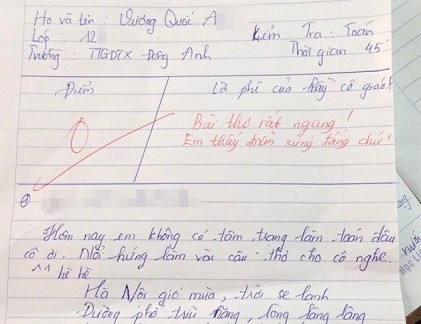 Họ và tên : Vương Quốc A
Lớp : 12
Kiểm Tra : Toán
Trường : TTGDTX - Đông Anh
Thời gian : 45'
Điểm
Lời phê của thầy cô giáo!
0
Bài thơ rất ngang !
Em thấy điểm xứng đáng chứ!
Hôm nay em không có tâm trạng làm toán đâu
cô ơi. Nổi hứng làm vài câu thơ cho cô nghe.
^^ hề hề
Hà Nội gió mùa, trời se lạnh
Đường phố trĩu nặng, lòng lâng lâng